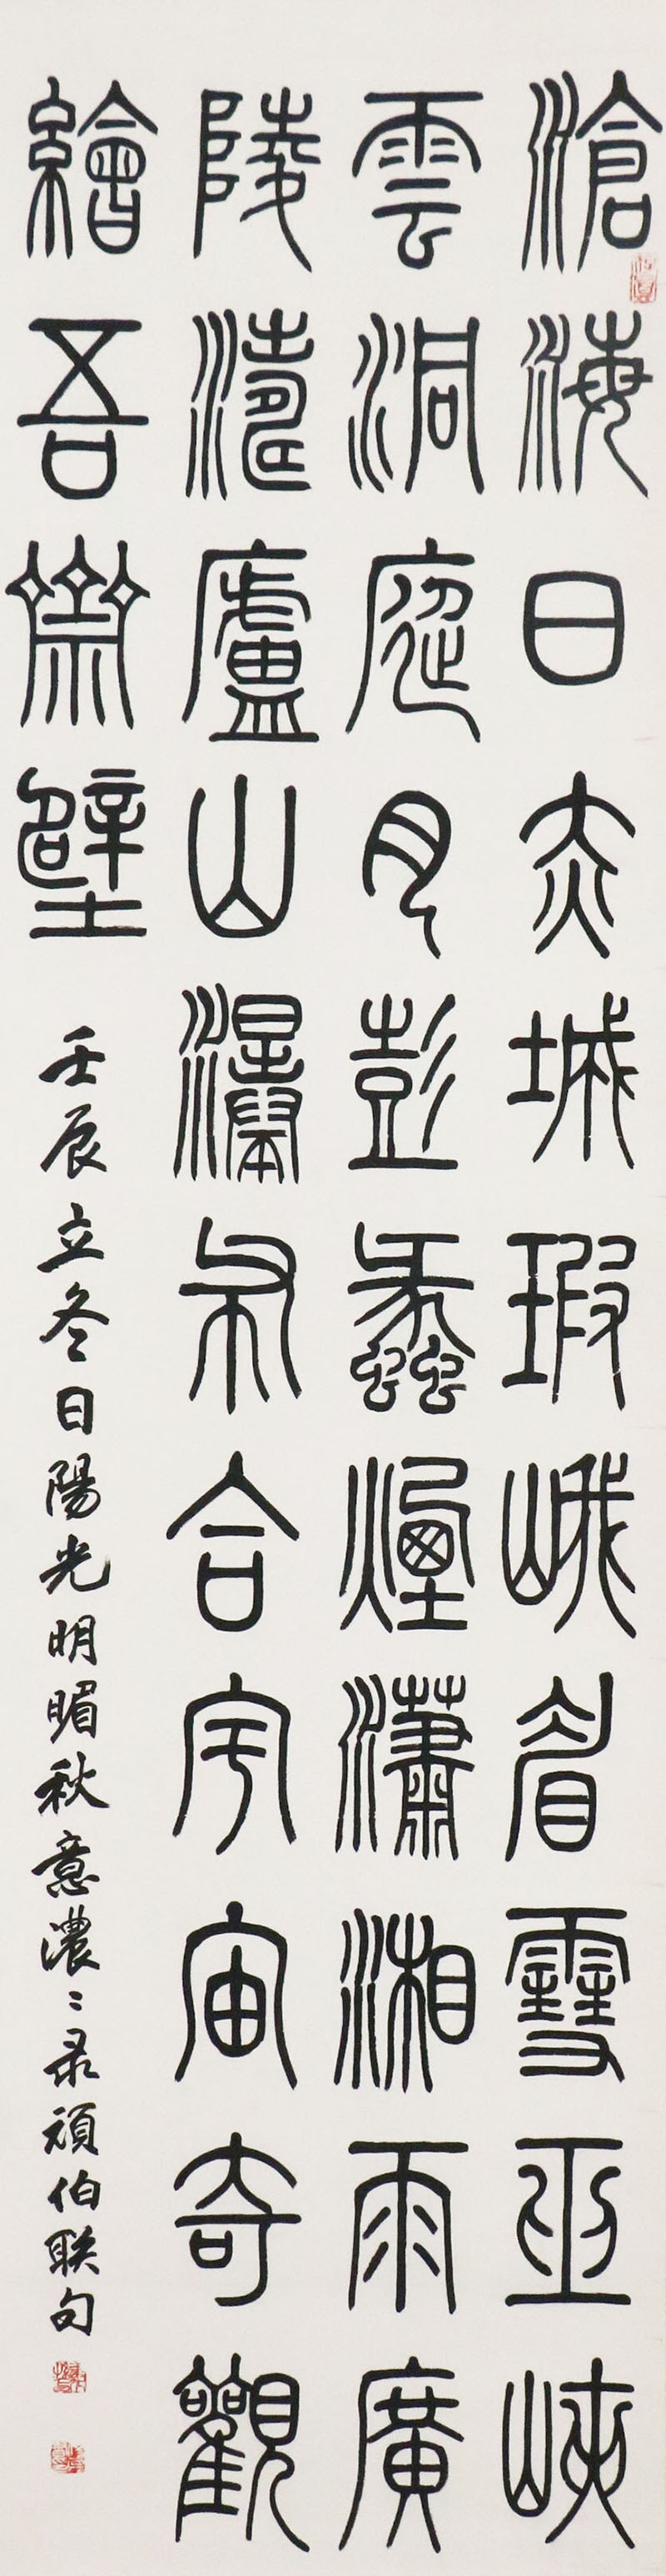 滄海日赤城瑕峨眉雪巫峽
雲洞庭月彭蠡煙瀟湘雨廣
陵濤廬山瀑布合宇宙奇觀
繪吾齋壁
壬辰立冬日陽光明媚秋意濃〻录頑伯联句